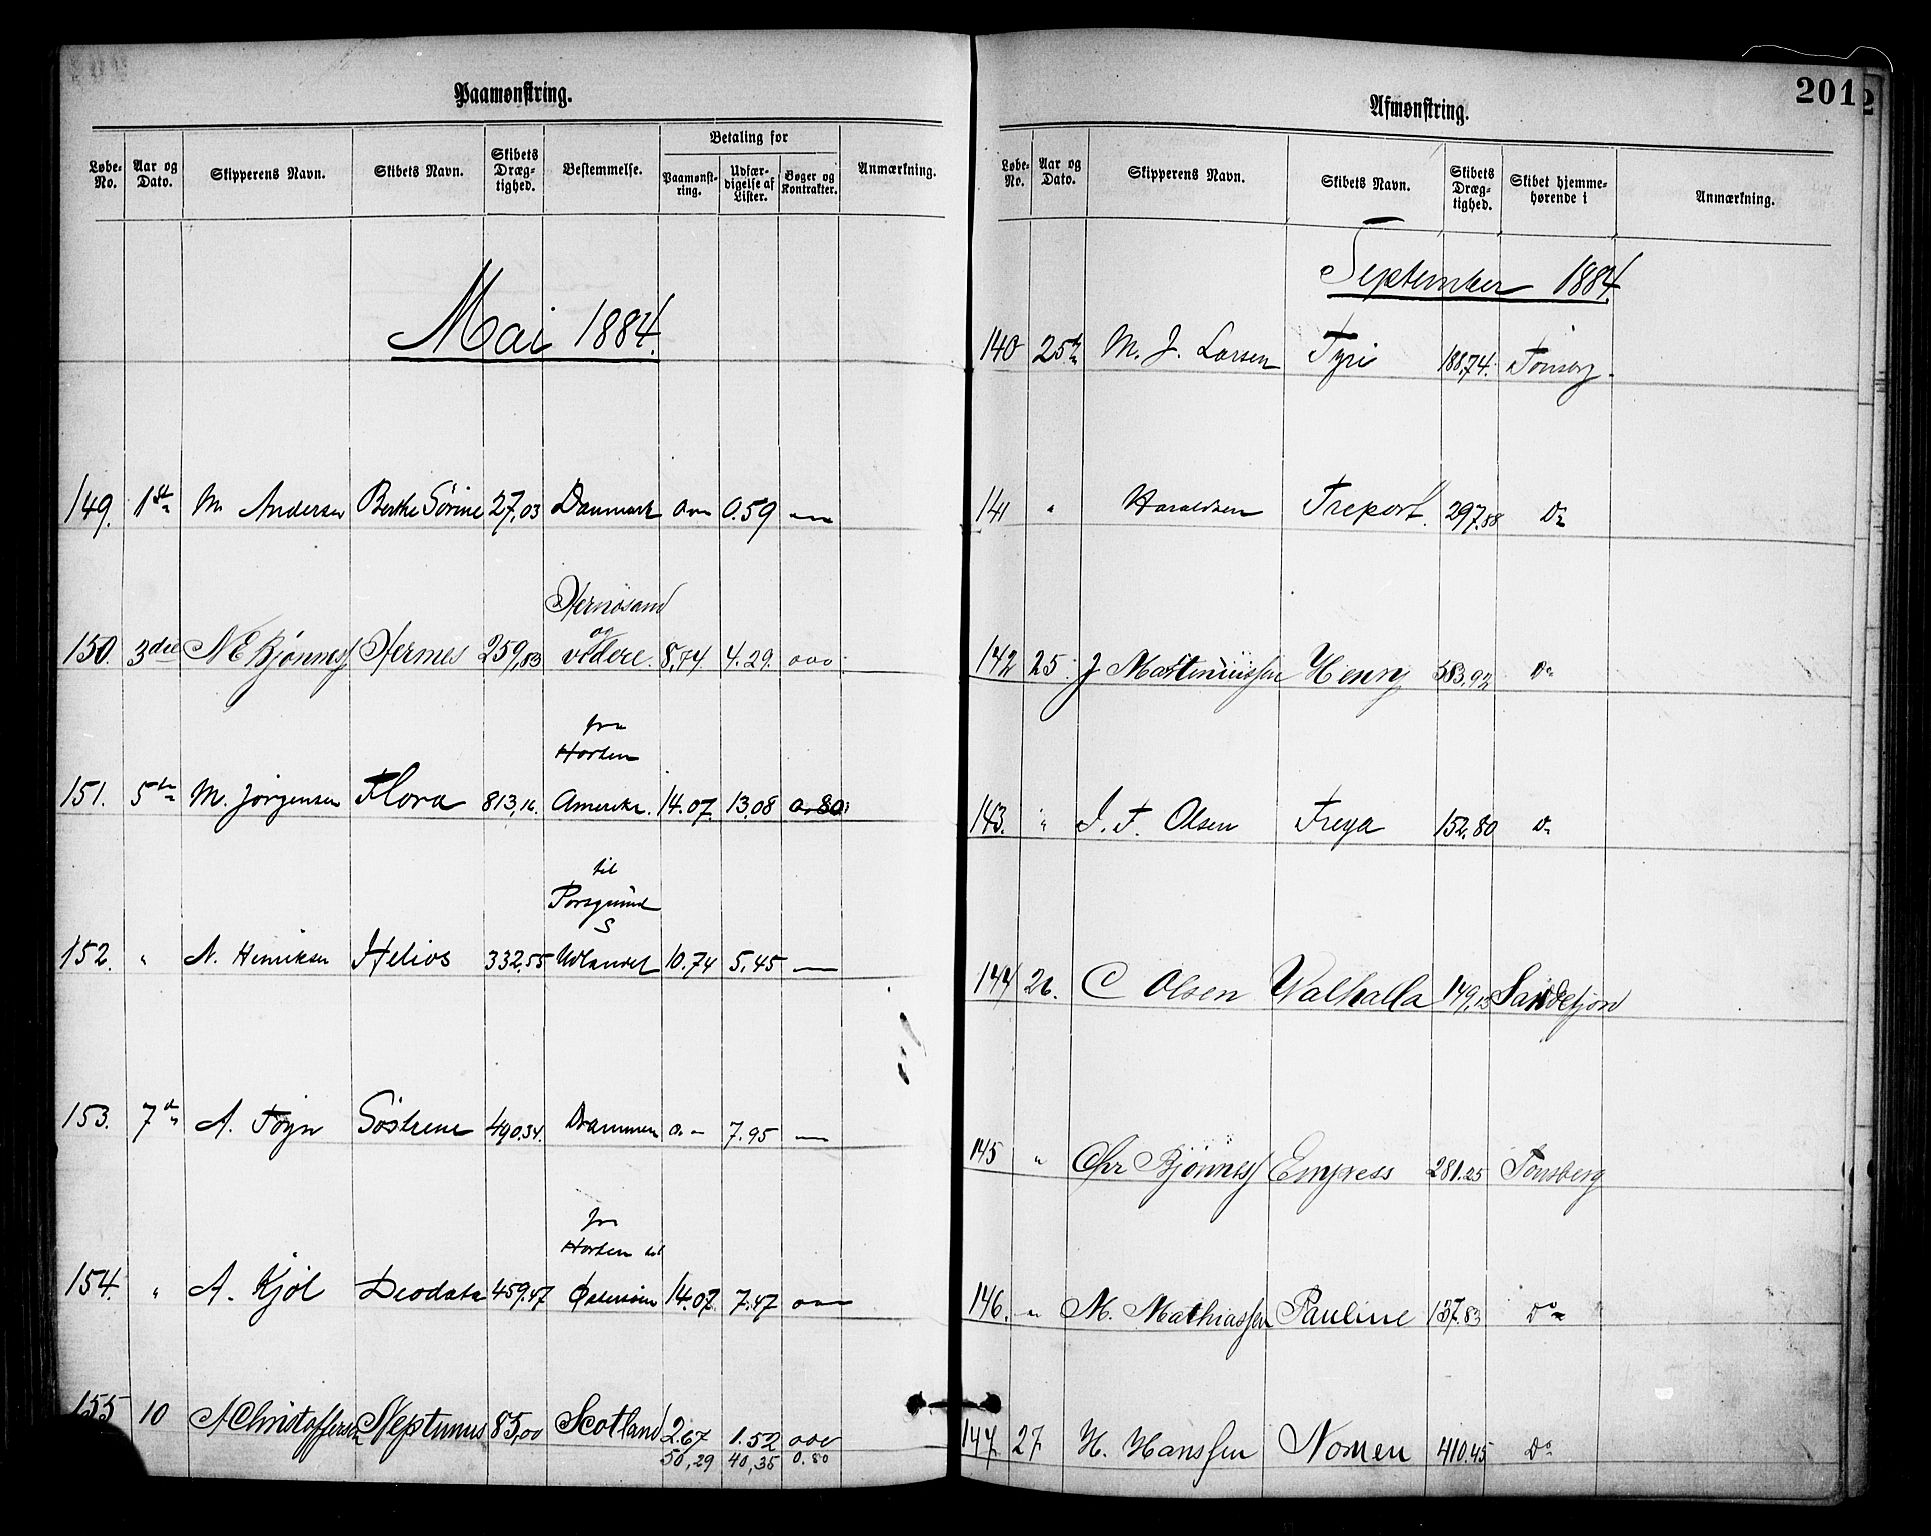 Paamønstring.
Løbe-No. Aar og Dato. Skipperens Navn. Skibets Navn. Skibets Dræg-tighed. Bestemmelse. Betaling for Paamønst-ring. Udfær-digelse af Lister. Bøger og Kontrakter. Anmærkning.
Mai 1884.
149. 1st M Andersen Berthe Sørine 27,03 Danmark 0.59
Hernøsand
og
150. 3die N E Bjønness Hermes 259,83 videre. 8,74 4.29.
fra
Horten
151. 5te M. Jørgensen Flora 813,16 Amerika. 14.07. 13,08 0.80
til
Porsgrund
152. " N. Henriksen Helios 332,55 Udlandet 10.74 5,45 —
153. 7de A. Føyn Søstrene 490.34. Drammen 7.95 —
fra
Horten til
154. " A. Kjøl Deodata 459.47 Østersøen 14.07. 7.47
155 10 A Christoffersen Neptunus 85,00 Scotland 2.67 1.52
50,29 40,35 0.80
201
Afmønstring.
Løbe-No. Aar og Dato. Skipperens Navn. Skibets Navn. Skibets Dræg-tighed. Skibet hjemme-hørende i Anmærkning.
September 1884.
140 25de M. J. Larsen Tyri 188,74. Tønsberg.
141 " Haraldsen Treport. 297.88 Do
142 25. J Martinussen Henry 583,92 Do
143. " J. F. Olsen Freya 152,80 Do
144 26. C Olsen Walhalla 149,15 Sandefjord
145 " Chr Bjønness Empress 281.25 Tønsberg
146. " M. Mathiassen Pauline 137.83 Do
147. 27 H. Hanssen Nomen 410.45 Do